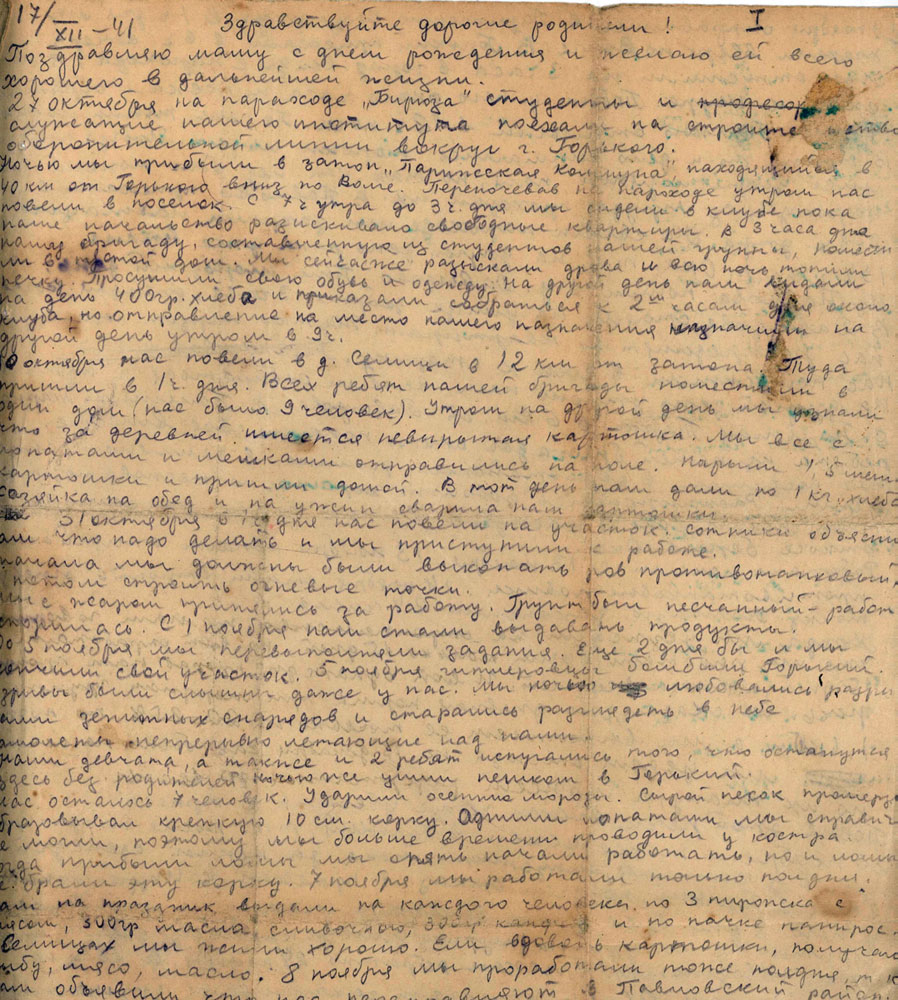 17/XII-41 Здравствуйте дорогие родители! I
Поздравляю маму с днем рождения и желаю ей всего
хорошего в дальнейшей жизни.
27 октября на параходе „Бирюза" студенты и професор
служащие нашего института поехали на строительство
оборонительной линии вокруг г. Горького.
Ночью мы прибыли в затон „Парижсская Коммуна", находящийся в
40 км от Горького вниз по Волге. Переночевав на пароходе утром нас
повели в поселок. С 7 ч утра до 3 ч. дня мы сидели в клубе пока
наше начальство разискивало свободные квартиры. В 3 часа дня
нашу бригаду, составленную из студентов нашей группы, помести
ли в пустой дом. Мы сейчасже разыскали дрова и всю ночь топили
печку. Просушили свою обувь и одежду. На другой день нам выдали
на день 400 гр. хлеба и приказали собраться к 2ум часам дня около
клуба, но отправление на место нашего назначения назначили на
другой день утром в 9 ч.
октября нас повели в д. Селищи в 12 км от затона. Туда
пришли в 1 ч. дня. Всех ребят нашей бригады поместили в
один дом (нас было 9 человек). Утром на другой день мы узнали
что за деревней имеется невырытая картошка. Мы все с
лопатами и мешками отправились на поле. Нарыли 1,5 меш
картошки и пришли домой. В тот день нам дали по 1 кг. хлеба
хозяйка на обед и на ужин сварила нам картошки.
31 октября в 12 дня нас повели на участок. Сотники объясни
ам что надо делать и мы приступили к работе.
начала мы должны были выкопать ров противотанковый,
потом строить огневые точки.
мы с жаром принялись за работу. Грунт был песчанный - работ
спорилась. С 1 ноября нам стали выдавать продукты.
До 5 ноября мы перевыполняли задания. Еще 2 дня бы и мы
кончили свой участок. 5 ноября гитлеровцы бомбили Горький.
зрывы были слышны даже у нас. Мы ночью любовались разры
ами зенитных снарядов и старались разглядеть в небе
амолеты непрерывно летающие над нами.
наши девчата, а также и 2 ребят испугались того, что останутся
здесь без родителей ночью же ушли пешком в Горький.
нас осталось 7 человек. Ударили осенние морозы. Сырой песок промерз
бразовывал крепкую 10 см. корку. Одними лопатами мы справить
е могли, поэтому мы больше времени проводили у костра.
огда прибыли ломы мы опять начали работать, но и ломы
е брали эту корку. 7 ноября мы работали только полдня.
ам на праздник выдали на каждого человека по 3 пирожка с
мясом, 300 гр масла сливочного, 300 гр и по пачке папирос.
Селищах мы жили хорошо. Ели вдоволь картошки, получали
мясо, масло. 8 ноября мы проработали тоже полдня, т.к.
ам объявили что нас в Павловский район